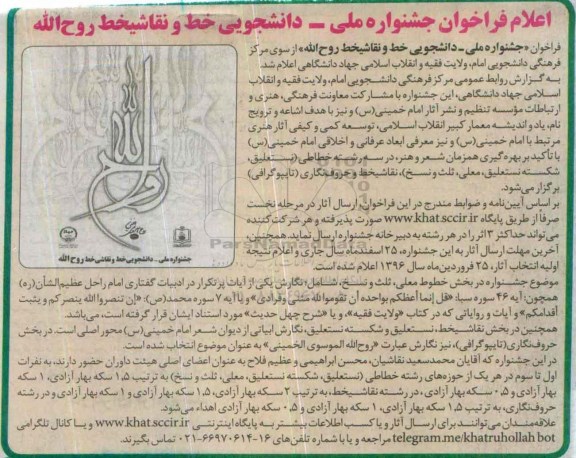 اعلام فراخوان جشنواره ملی – دانشجویی خط و نقاشیخط روح‌الله
فراخوان «جشنواره ملی - دانشجویی خط و نقاشیخط روح‌الله» از سوی مرکز
فرهنگی دانشجویی امام، ولایت فقیه و انقلاب اسلامی جهاد دانشگاهی اعلام شد.
به گزارش روابط عمومی مرکز فرهنگی دانشجویی امام، ولایت فقیه و انقلاب
اسلامی جهاد دانشگاهی، این جشنواره با مشارکت معاونت فرهنگی، هنری و
ارتباطات مؤسسه تنظیم و نشر آثار امام خمینی(س) و نیز با هدف اشاعه و ترویج
نام، یاد و اندیشه معمار کبیر انقلاب اسلامی، توسعه کمی و کیفی آثار هنری
مرتبط با امام خمینی(س) و نیز معرفی ابعاد عرفانی و اخلاقی امام خمینی(س)
با تأکید بر بهره‌گیری همزمان شعر و هنر، در سه رشته خطاطی (نستعلیق،
شکسته نستعلیق، معلی، ثلث و نسخ)، نقاشیخط و حروف‌نگاری (تایپوگرافی)
برگزار می‌شود.
جشنواره ملی - دانشجویی خط و نقاشی خط روح الله
بر اساس آیین‌نامه و ضوابط مندرج در این فراخوان، ارسال آثار در مرحله نخست
صرفا از طریق پایگاه www.khat.sccir.ir صورت پذیرفته و هر شرکت کننده
می‌تواند حداکثر ۳ اثر را در هر رشته به دبیرخانه جشنواره ارسال نماید. همچنین
آخرین مهلت ارسال آثار به این جشنواره، ۲۵ اسفندماه سال جاری و اعلام نتیجه
اولیه انتخاب آثار، ۲۵ فروردین‌ماه سال ۱۳۹۶ اعلام شده است.
موضوع جشنواره در بخش خطوط معلی، ثلث و نسخ، شامل نگارش یکی از آیات پرتکرار در ادبیات گفتاری امام راحل عظیم‌الشأن(ره)
همچون: آیه ۴۶ سوره سبا: «قل إنما أعظکم بواحده أن تقوموا لله مثنی و فرادی» و یا آیه ۷ سوره محمد(ص): «إن تنصروا الله ینصرکم و یثبت
أقدامکم» و آیات و روایاتی که در کتاب «ولایت فقیه»، و یا «شرح چهل حدیث» مورد استناد ایشان قرار گرفته است، می‌باشد.
همچنین در بخش نقاشیخط، نستعلیق و شکسته نستعلیق، نگارش ابیاتی از دیوان شعر امام خمینی(س) محور اصلی است. در بخش
حروف‌نگاری(تایپوگرافی)، نیز نگارش عبارت «روح‌الله الموسوی الخمینی» به عنوان موضوع انتخاب شده است.
در این جشنواره که آقایان محمدسعید نقاشیان، محسن ابراهیمی و عظیم فلاح به عنوان اعضای اصلی هیئت داوران حضور دارند، به نفرات
اول تا سوم در هر یک از حوزه‌های رشته خطاطی (نستعلیق، شکسته نستعلیق، معلی، ثلث و نسخ) به ترتیب ۱,۵ سکه بهار آزادی، ۱ سکه
بهار آزادی و ۰,۵ سکه بهار آزادی، در رشته نقاشیخط، به ترتیب ۲ سکه بهار آزادی، ۱,۵ سکه بهار آزادی و ۱ سکه بهار آزادی و در رشته
حروف‌نگاری، به ترتیب ۱,۵ سکه بهار آزادی، ۱ سکه بهار آزادی و ۰,۵ سکه بهار آزادی اهداء می‌شود.
علاقه‌مندان می‌توانند برای ارسال آثار و یا کسب اطلاعات بیشتر به پایگاه اینترنتی www.khat.sccir.ir و یا کانال تلگرامی
telegram.me/khatruhollah bot مراجعه و یا با شماره تلفن‌های ۱۶-۶۶۹۷۰۶۱۴-۰۲۱ تماس بگیرند.